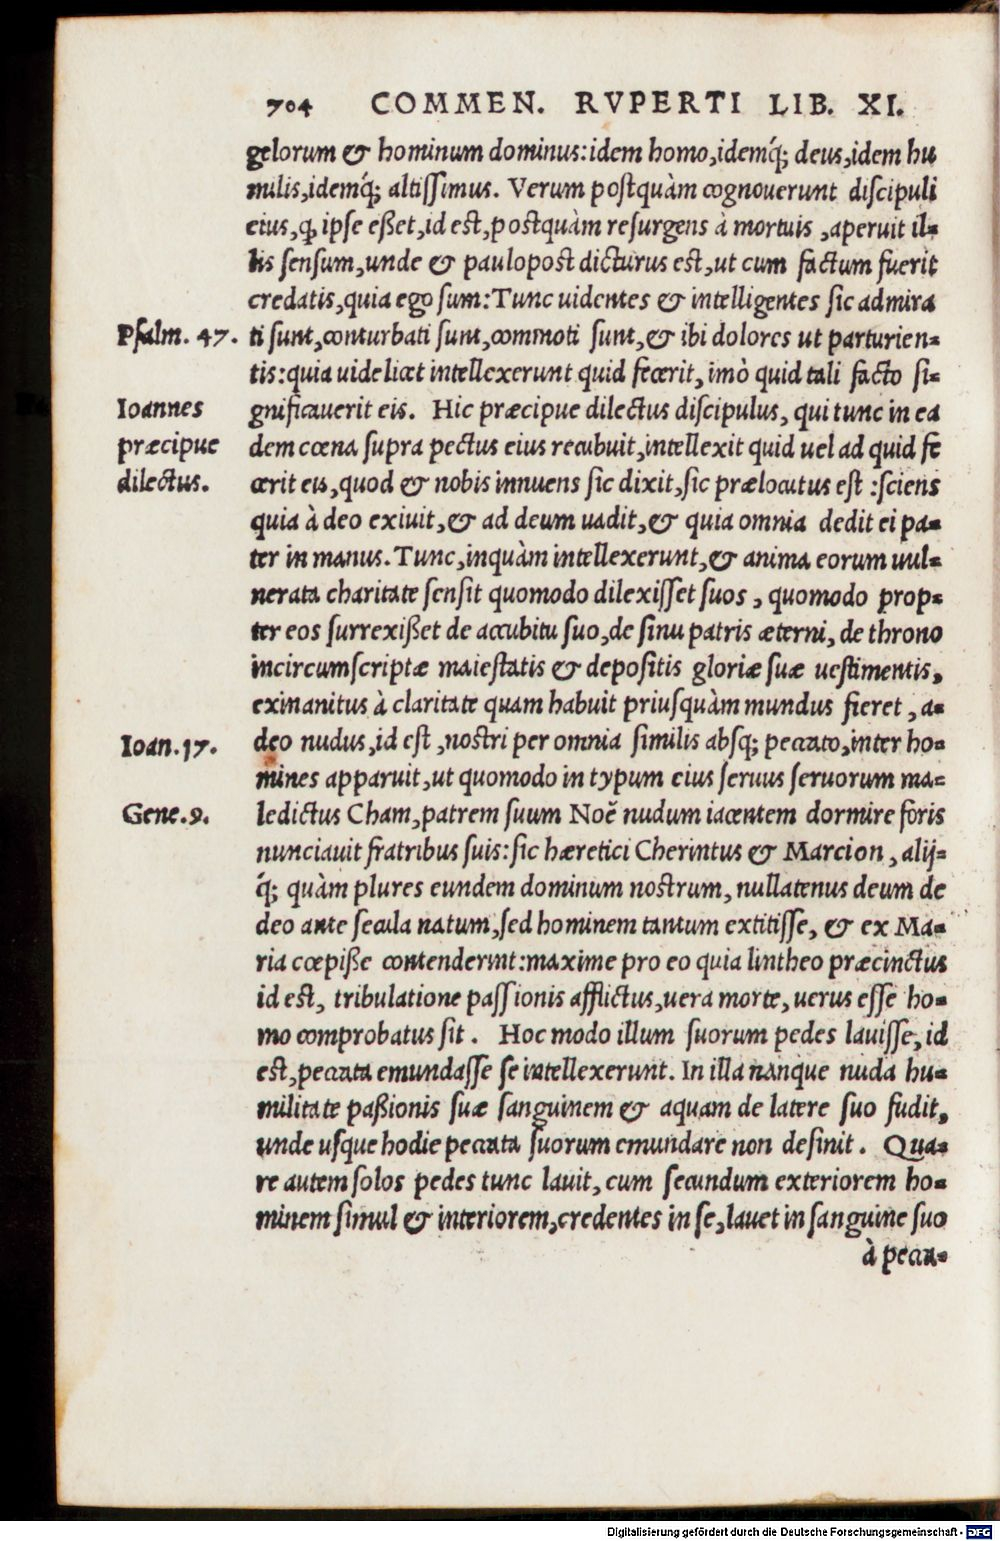 704 COMMEN. RVPERTI LIB. XI.
gelorum & hominum dominus:idem homo,idemq́; deus,idem hu
milis,idemq́; altiſſimus. Verum poſtquàm cognouerunt diſcipuli
eius,ꝙ ipſe eßet,id eſt,poſtquàm reſurgens à mortuis ,aperuit il-
lis ſenſum,unde & paulopoſt dicturus eſt,ut cum factum fuerit
credatis,quia ego ſum:Tunc uidentes & intelligentes ſic admira
Pſalm. 47. ti ſunt,conturbati ſunt,commoti ſunt,& ibi dolores ut parturien-
tis:quia uidelicet intellexerunt quid fecerit, imò quid tali facto ſi-
Ioannes gnificauerit eis. Hic præcipue dilectus diſcipulus, qui tunc in ea
præcipue dem cœna ſupra pectus eius recubuit,intellexit quid uel ad quid fe
dilectus. cerit eis,quod & nobis innuens ſic dixit,ſic prælocutus eſt :ſciens
quia à deo exiuit,& ad deum uadit,& quia omnia dedit ei pa-
ter in manus. Tunc,inquàm intellexerunt,& anima eorum uul-
nerata charitate ſenſit quomodo dilexiſſet ſuos , quomodo prop-
ter eos ſurrexißet de accubitu ſuo,de ſinu patris æterni, de throno
incircumſcriptæ maieſtatis & depoſitis gloriæ ſuæ ueſtimentis,
exinanitus à claritate quam habuit priuſquàm mundus fieret , a-
Ioan.17. deo nudus,id eſt ,noſtri per omnia ſimilis abſq; peccato,inter ho-
mines apparuit,ut quomodo in typum eius ſeruus ſeruorum ma-
Gene.9. ledictus Cham,patrem ſuum Noë nudum iacentem dormire foris
nunciauit fratribus ſuis:ſic hæretici Cherintus & Marcion, alij-
q́; quàm plures eundem dominum noſtrum, nullatenus deum de
deo ante ſecula natum,ſed hominem tantum extitiſſe, & ex Ma-
ria cœpiße contenderint:maxime pro eo quia lintheo præcinctus
id eſt, tribulatione paſſionis afflictus,uera morte, uerus eſſe ho-
mo comprobatus ſit . Hoc modo illum ſuorum pedes lauiſſe, id
eſt,peccata emundaſſe ſe intellexerunt. In illa nanque nuda hu-
militate paßionis ſuæ ſanguinem & aquam de latere ſuo fudit,
unde uſque hodie peccata ſuorum emundare non deſinit . Qua-
re autem ſolos pedes tunc lauit, cum ſecundum exteriorem ho-
minem ſimul & interiorem,credentes in ſe,lauet in ſanguine ſuo
à pecca-
Digitalisierung gefördert durch die Deutsche Forschungsgemeinschaft - DFG